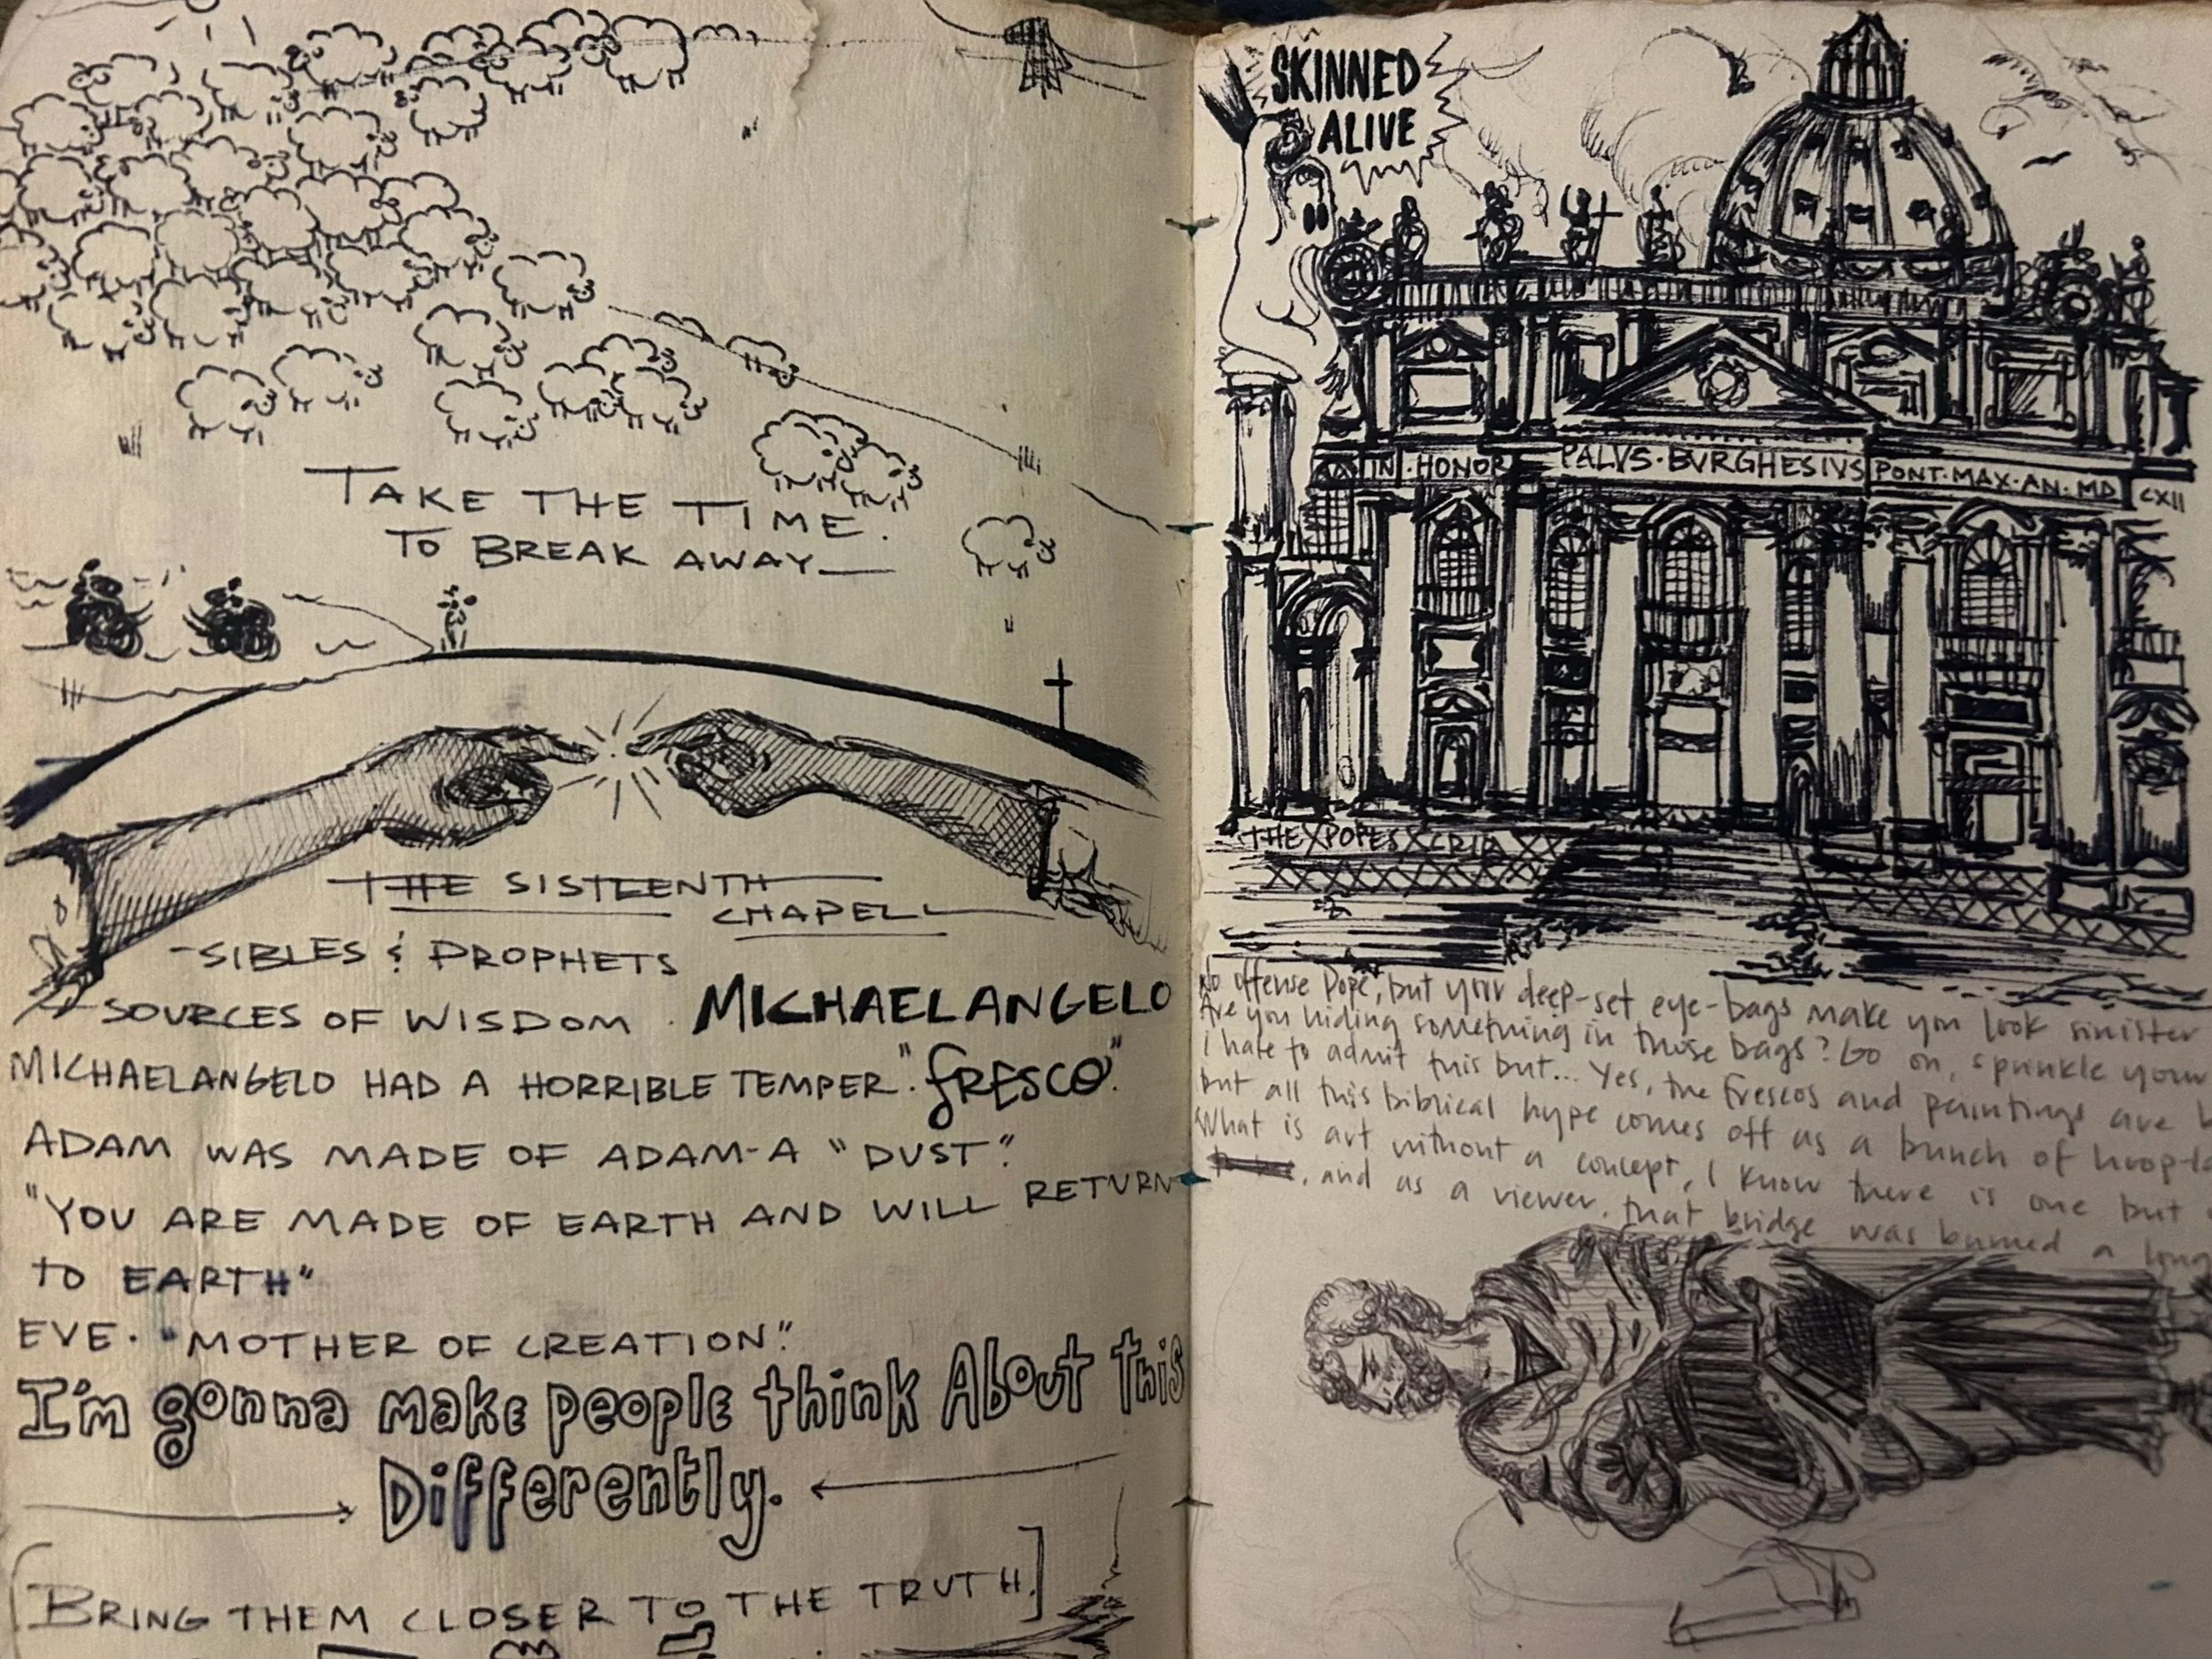 TAKE THE TIME.
TO BREAK AWAY—
THE SISTEENTH
CHAPELL
-SIBLES & PROPHETS
SOURCES OF WISDOM . MICHAELANGELO
MICHAELANGELO HAD A HORRIBLE TEMPER. "fRESCO".
ADAM WAS MADE OF ADAM-A "DUST".
"YOU ARE MADE OF EARTH AND WILL RETURN
TO EARTH"
EVE. "MOTHER OF CREATION."
I'm gonna make people think About This
Differently.
[BRING THEM CLOSER TO THE TRUTH.]
SKINNED
ALIVE
IN · HONOR PALVS · BVRGHESIVS PONT · MAX · AN · MD CXII
THE X POPES X CRIB
No offense Pope, but your deep-set eye-bags make you look sinister
Are you hiding something in those bags? Go on, sprinkle your
I hate to admit this but... Yes, the frescos and paintings are
but all this biblical hype comes off as a bunch of hoop-la
What is art without a concept, I know there is one but
, and as a viewer, that bridge was burned a long